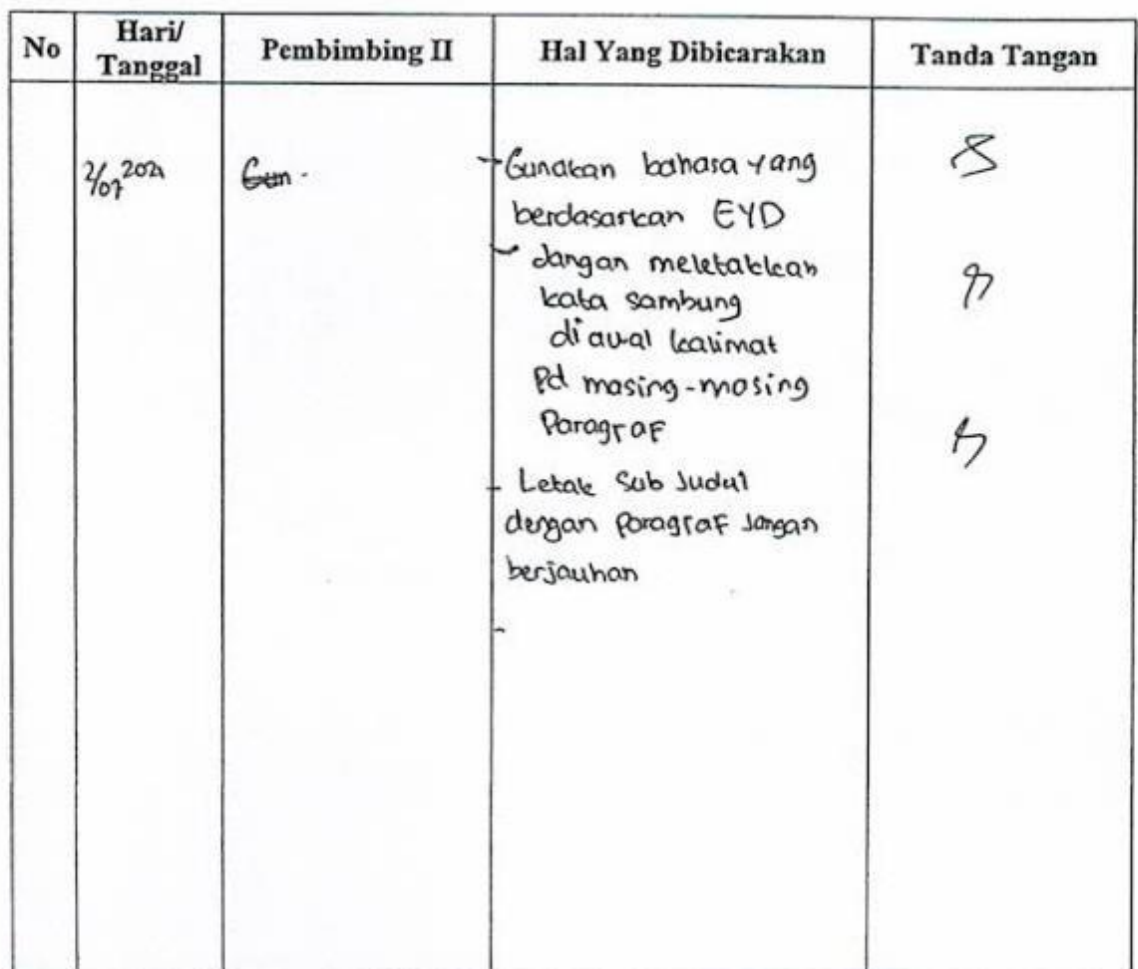 No Hari/ Tanggal Pembimbing II Hal Yang Dibicarakan Tanda Tangan
2/07 Gunakan bahasa yang
berdasarkan EYD
- Jangan meletakkan
kata sambung
di awal kalimat
Pd masing-masing
Paragraf
- Letak Sub Judul
dengan Paragraf Jangan
berjauhan
-